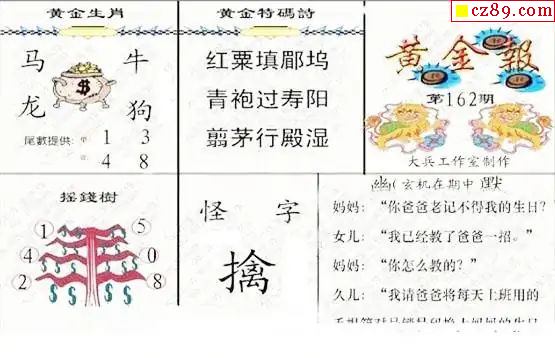 cz89.com
黄金生肖
马 牛
龙 狗
$
尾數提供:
1 3
4 8
黄金特碼詩
红粟填郿坞
青袍过寿阳
翦茅行殿湿
黄金報
第162期
大兵工作室制作
摇錢樹
1 5
4 0
2 8
怪 字
擒
幽(玄机在期中 默
妈妈:“你爸爸老记不得我的生日?
女儿:“我已经教了爸爸一招。”
妈妈:“你怎么教的?”
久儿:“我请爸爸将每天上班用的